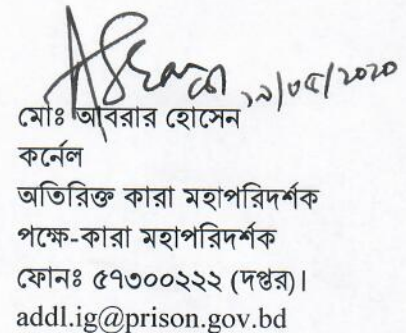 ১৯/০৫/২০২০
মোঃ আবরার হোসেন
কর্নেল
অতিরিক্ত কারা মহাপরিদর্শক
পক্ষে-কারা মহাপরিদর্শক
ফোনঃ ৫৭৩০০২২২ (দপ্তর)।
addl.ig@prison.gov.bd